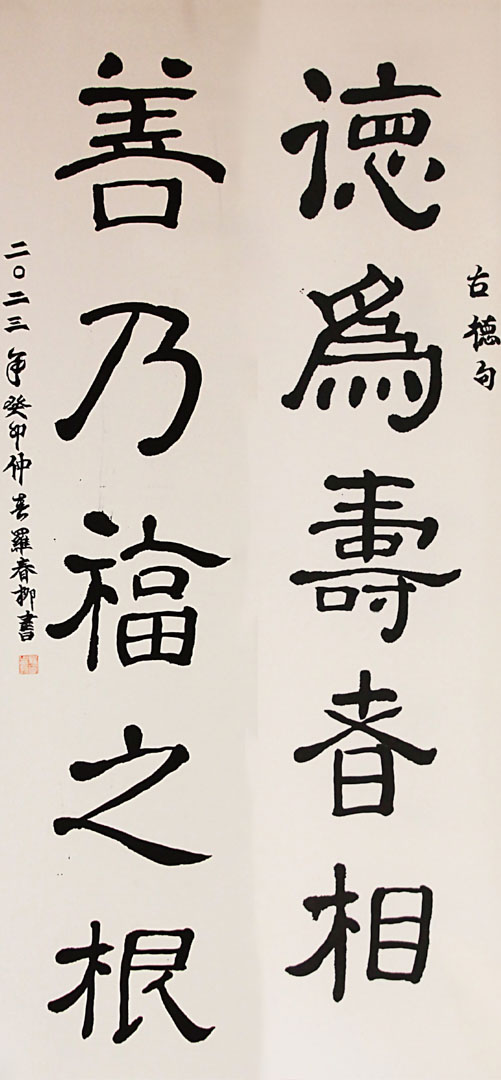 古德句
德爲壽者相
善乃福之根
二〇二三年癸卯仲春羅春柳書